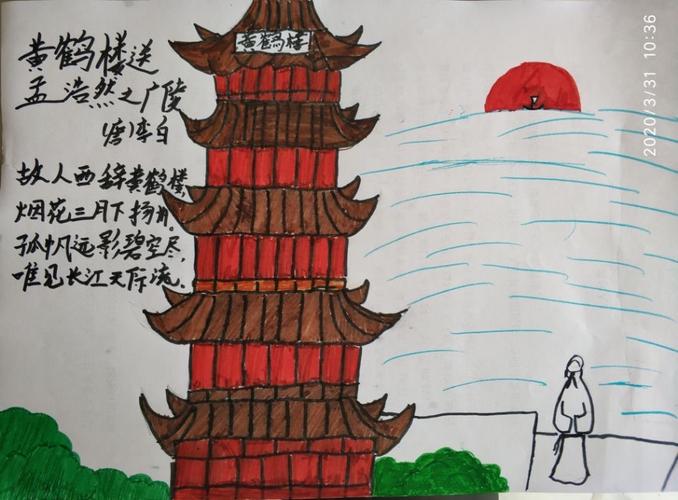 黄鹤楼送
孟浩然之广陵
唐 李白
故人西辞黄鹤楼,
烟花三月下扬州。
孤帆远影碧空尽,
唯见长江天际流。
黄鹤楼
2020/3/31 10:36